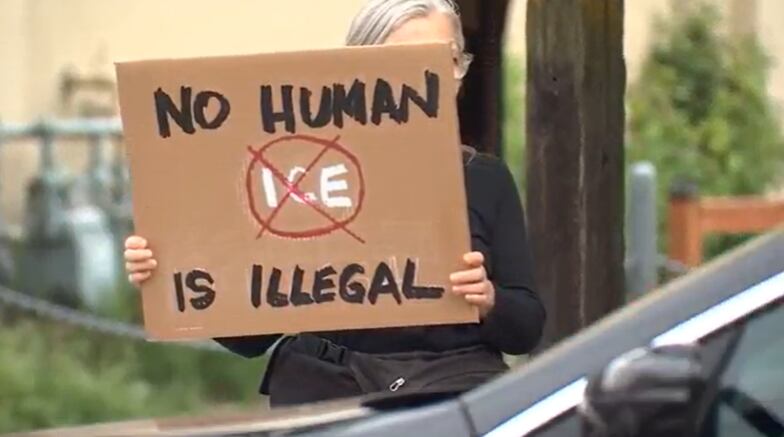 NO HUMAN
ICE
IS ILLEGAL